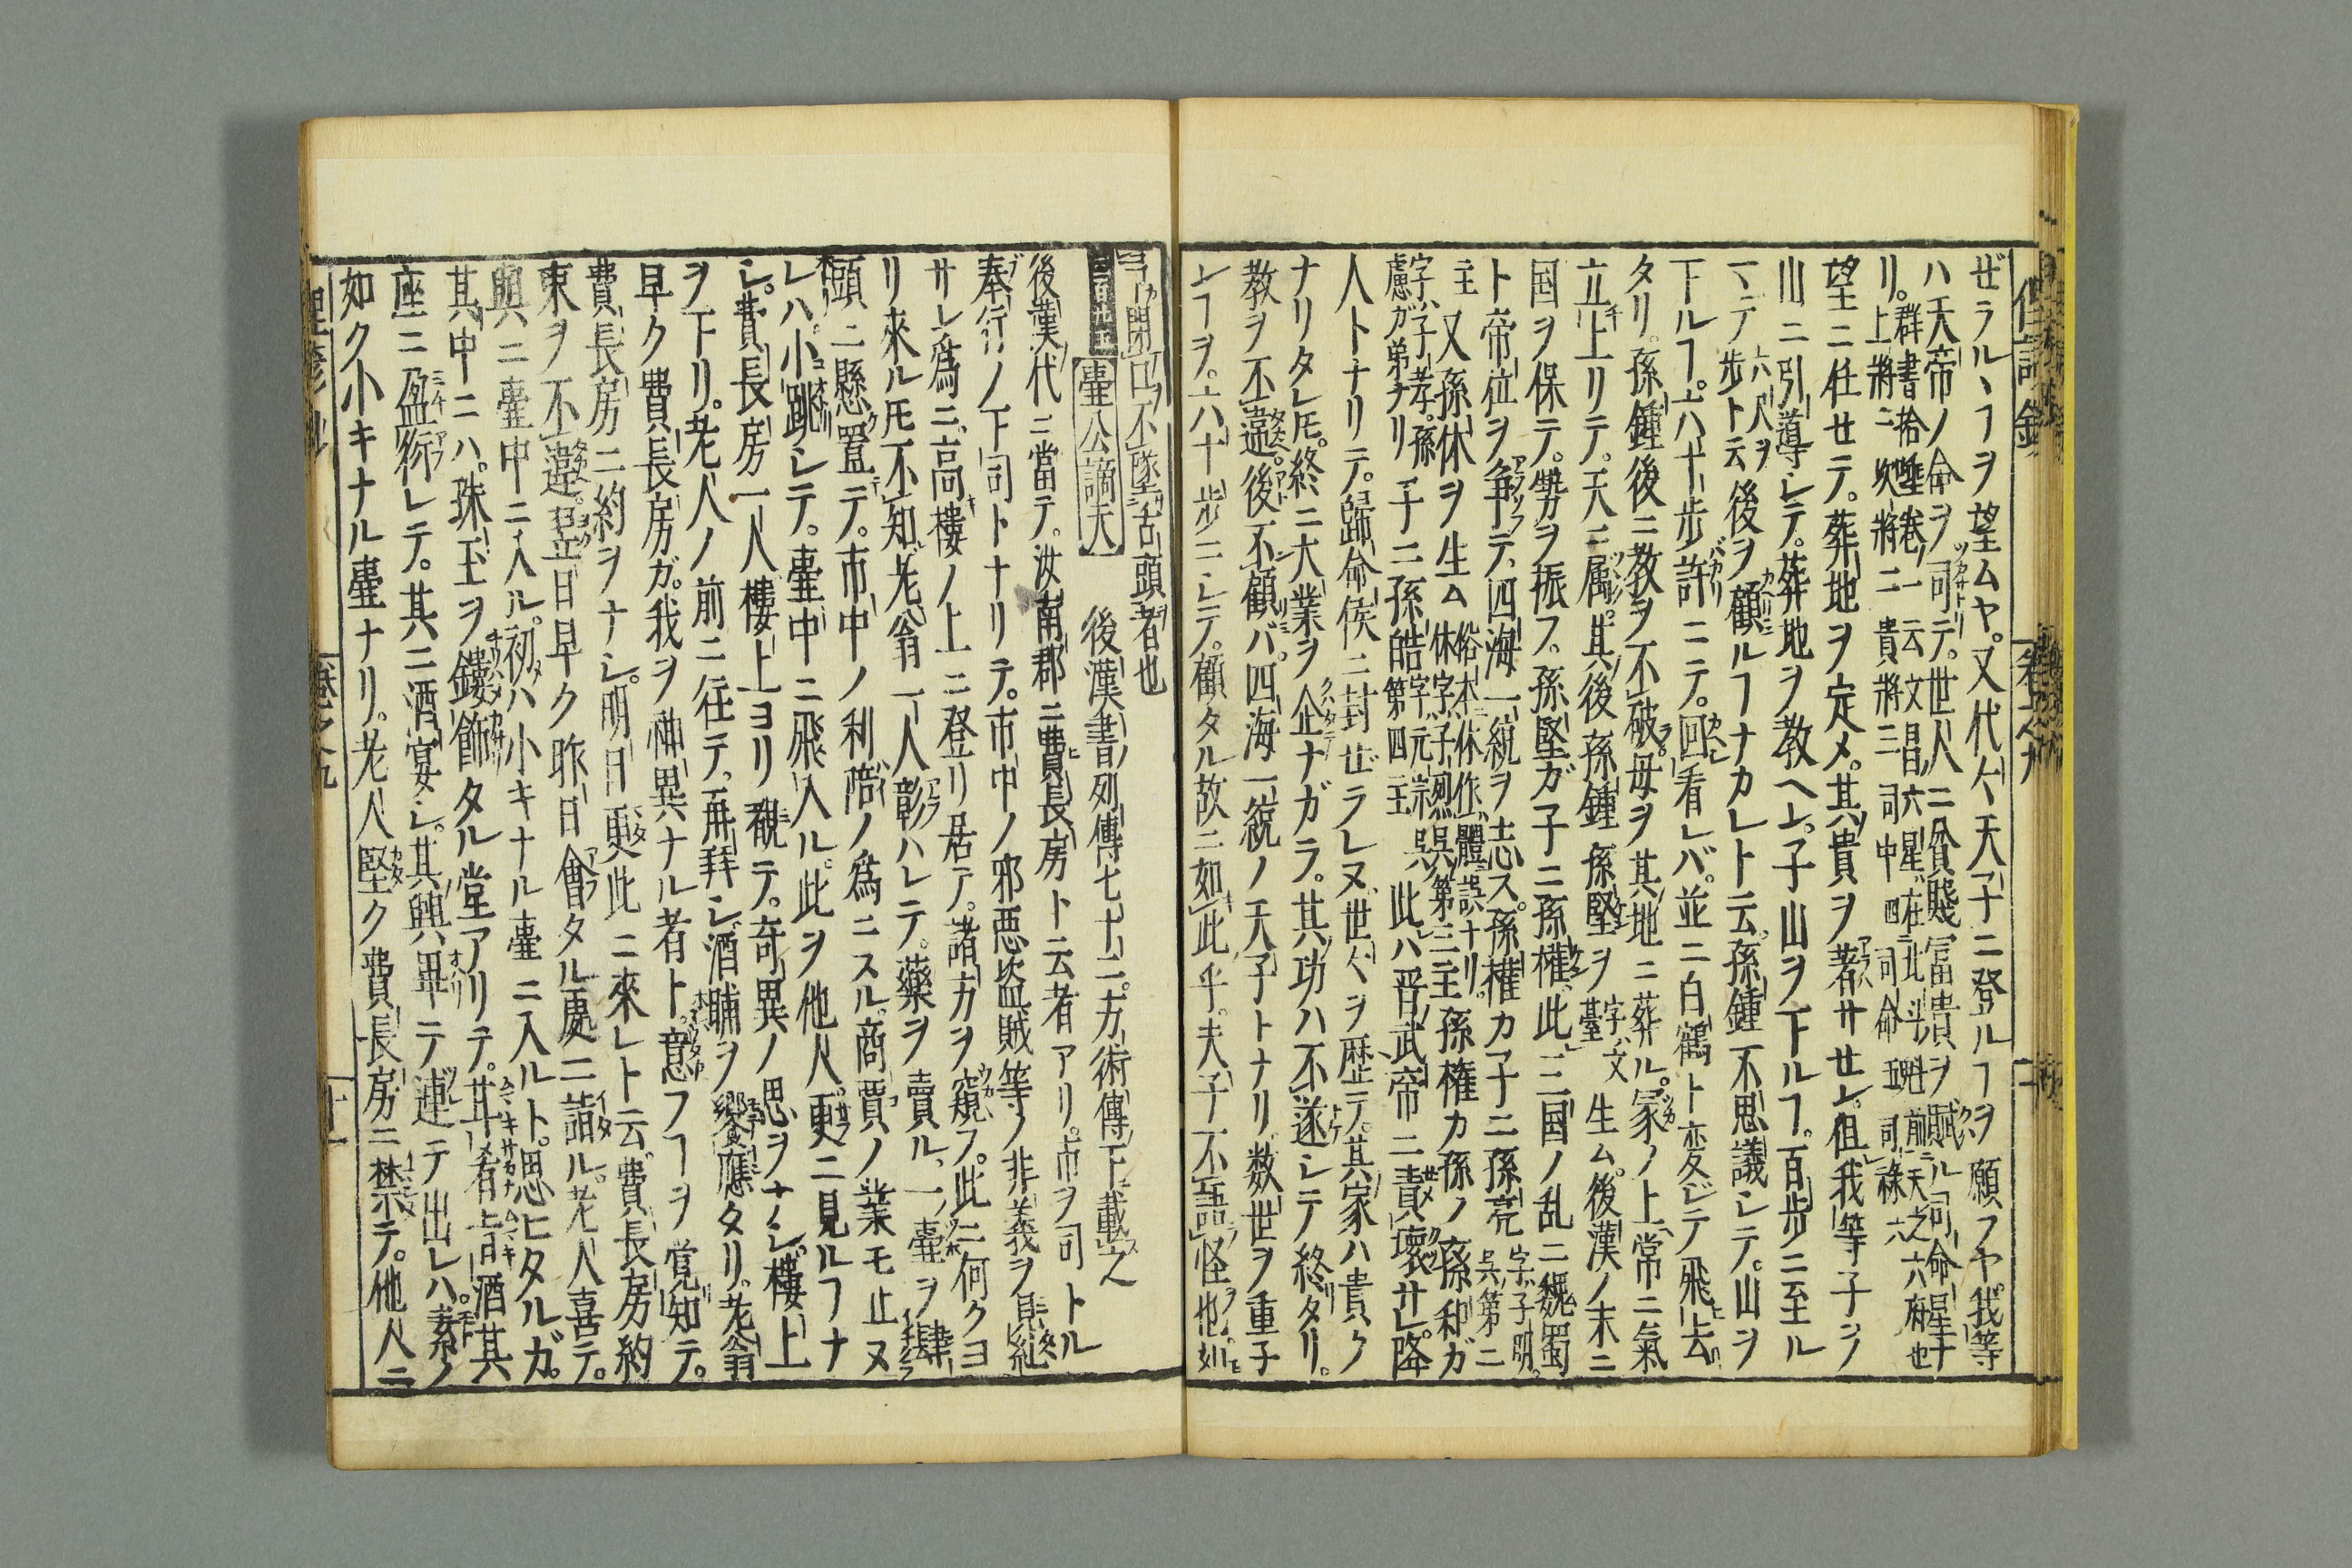 ゼラルヽヿヲ望ムヤ。又代々天子ニ登ルヿヲ願フヤ。我等
ハ天帝ノ命ヲ司テ。世人ニ貧賤冨貴ヲ賦ル司命星ナ
リ。群書拾唾卷一云文昌六星在北斗魁前天之六府也
上將二次將二貴將三司中四司命五司祿六
望ニ任セテ。葬地ヲ定メ。其貴ヲ著サセン。但我等子ヲ
山ニ引導シテ。葬地ヲ教ヘン。子山ヲ下ルヿ。百歩ニ至ル
マデ六尺ヲ歩ト云後ヲ顧ルヿナカレト云。孫鍾不思議シテ。山ヲ
下ルヿ。六十歩許ニテ。回看レバ。並ニ白鶴ト変ジテ飛去
タリ。孫鍾後ニ教ヲ不破。母ヲ其地ニ葬ル。冢ノ上常ニ氣
立上リテ。天ニ属。其後孫鍾孫堅ヲ字ハ文臺生ム。後漢ノ末ニ
国ヲ保テ。勢ヲ振フ。孫堅ガ子ニ孫權。此三国ノ乱ニ魏蜀
ト帝位ヲ争テ。四海一統ヲ志ス。孫權カ子ニ孫亮字ハ子明。呉第二
主又孫休ヲ生ム俗本休作體誤ナリ。休字子烈呉第三主孫権カ孫ノ孫和ガ
字ハ子孝。孫慮ガ弟ナリ子ニ孫皓字ハ元宗呉第四主此ハ晋武帝ニ責壞サレ。降
人トナリテ。歸命侯ニ封ゼラレヌ。世々ヲ歴テ。其家ハ貴ク
ナリタレ𪜈。終ニ大業ヲ企ナガラ。其功ハ不遂シテ終タリ。
教ヲ不違。後不顧バ。四海一統ノ天子トナリ。数世ヲ重子
ンヿヲ。六十歩ニシテ。顧タル故ニ如此乎。夫子不語怪也。如
閉口不墜舌頭者也
壷公謫天 後漢書列傳七十二。方術傳下載之
後漢代ニ當テ。汝南郡ニ費長房ト云者アリ。市ヲ司トル
奉行ノ下司トナリテ。市中ノ邪悪盗賊等ノ非義ヲ
サレン爲ニ。高樓ノ上ニ登リ居テ。諸方ヲ窺フ。此ニ何クヨ
リ來ル𪜈不知老翁一人彰ハレテ。藥ヲ賣ル。一壷ヲ肆
頭ニ懸置テ。市中ノ利ノ爲ニスル。商賈ノ業モ止ヌ
レハ。小跳シテ。壷中ニ飛入ル。此ヲ他人更ニ見ルヿナ
シ。費長房一人樓上ヨリ覩テ。奇異ノ思ヲナシ。樓上
ヲ下リ。老人ノ前ニ徃テ。再拜シ。酒脯ヲ饗應タリ。老翁
早ク費長房ガ。我ヲ神異ナル者ト。意フヿヲ覚知テ。
費長房ニ約ヲナシ。明日更此ニ來レト云。費長房約
束ヲ不違。翌日早ク昨日會タル處ニ詣ル。老人喜テ。
與ニ壷中ニ入ル。初ハ小キナル壷ニ入ルト。思ヒタルガ。
其中ニハ。珠玉ヲ鏤飾タル堂アリテ。旨酒其
座ニ盈衍レテ。其ニ酒宴シ。其興畢テ連テ出レハ。素ノ
如ク小キナル壷ナリ。老人堅ク費長房ニ禁テ。他人ニ